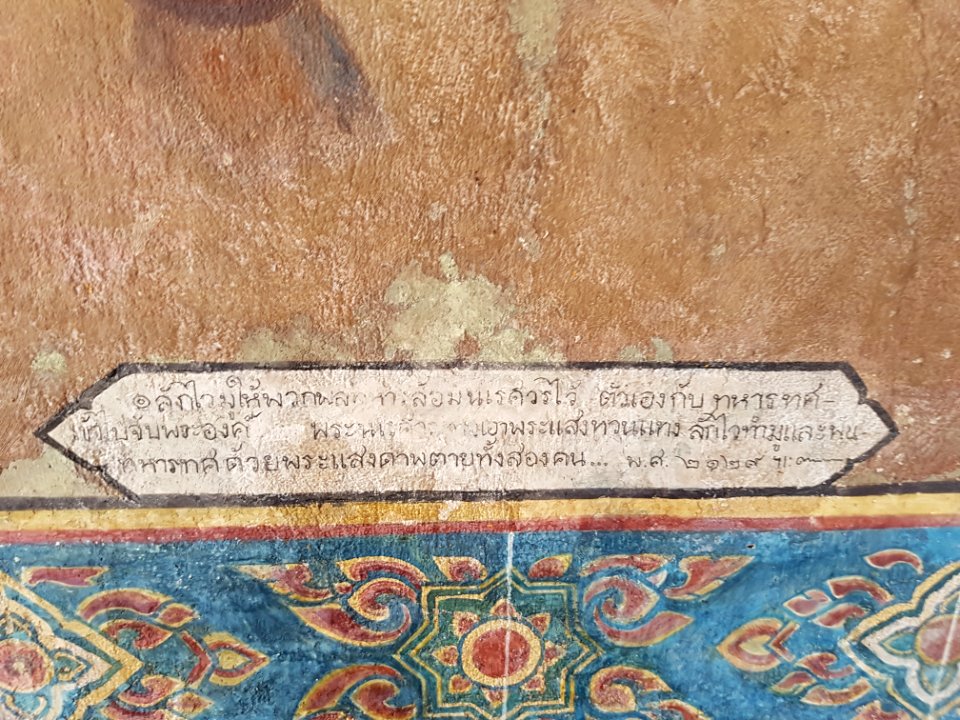 ๏ ลักไวทำมูให้พวกพลทหารล้อมนเรศวรไว้ ตัวเองกับ ทหาร ทศ-
เข้าไปจับพระองค์ พระนเรศวร เอาพระแสงทวนแทง ลักไวทำมูและฟัน
ทหารทศ ด้วยพระแสงดาพตายทั้งสองคน... พ.ศ. ๒๑๒๙